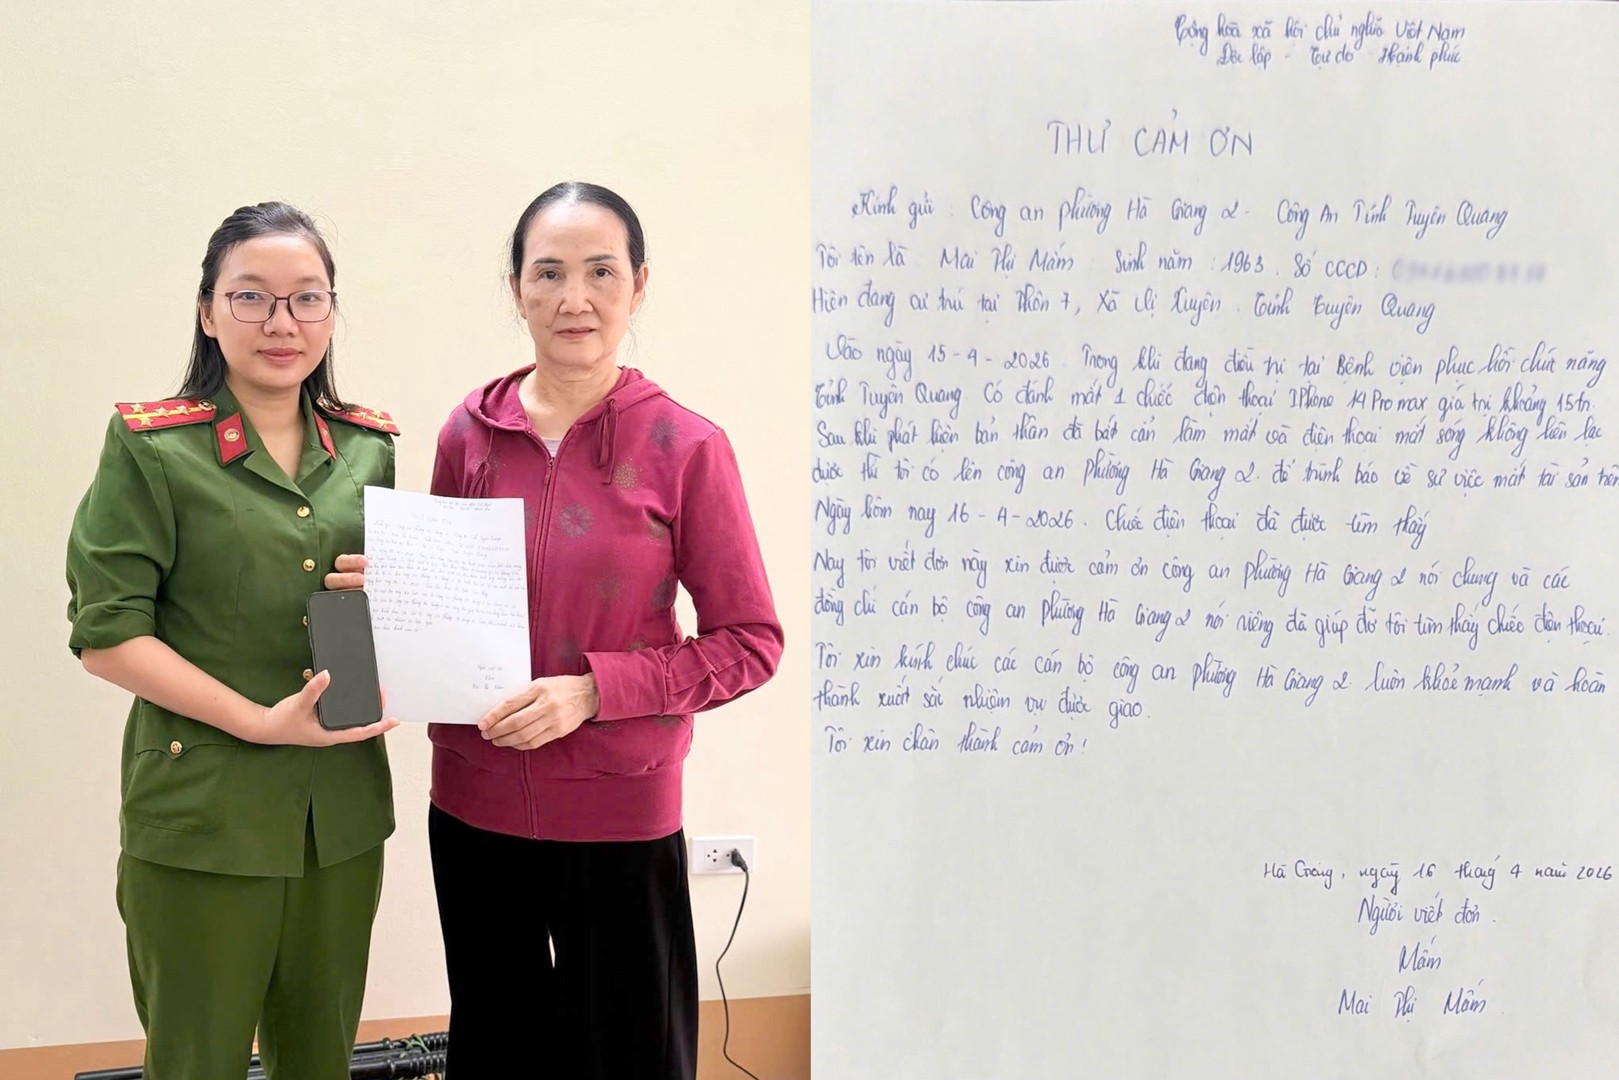 Cộng hòa xã hội chủ nghĩa Việt Nam
Độc lập - Tự do - Hạnh phúc
THƯ CẢM ƠN
Kính gửi : Công an phường Hà Giang 2 - Công An Tỉnh Tuyên Quang
Tôi tên là Mai Thị Mắm Sinh năm : 1963. Số CCCD :
Hiện đang cư trú tại Thôn 7, Xã Vị Xuyên . Tỉnh Tuyên Quang
Vào ngày 15-4-2026. Trong khi đang điều trị tại Bệnh viện phục hồi chức năng
Tỉnh Tuyên Quang. Có đánh mất 1 chiếc điện thoại IPhone 14 Pro max giá trị khoảng 15tr.
Sau khi phát hiện bản thân đã bất cẩn làm mất và điện thoại mất sóng không liên lạc
được thì tôi có lên công an phường Hà Giang 2. để trình báo về sự việc mất tài sản trên
Ngày hôm nay 16-4-2026. Chiếc điện thoại đã được tìm thấy
Nay tôi viết đơn này xin được cảm ơn công an phường Hà Giang 2 nói chung và các
đồng chí cán bộ công an phường Hà Giang 2 nói riêng đã giúp đỡ tôi tìm thấy chiếc điện thoại.
Tôi xin kính chúc các cán bộ công an phường Hà Giang 2. luôn khỏe mạnh và hoàn
thành xuất sắc nhiệm vụ được giao.
Tôi xin chân thành cảm ơn!
Hà Giang, ngày 16 tháng 4 năm 2026
Người viết đơn.
Mắm
Mai Thị Mắm